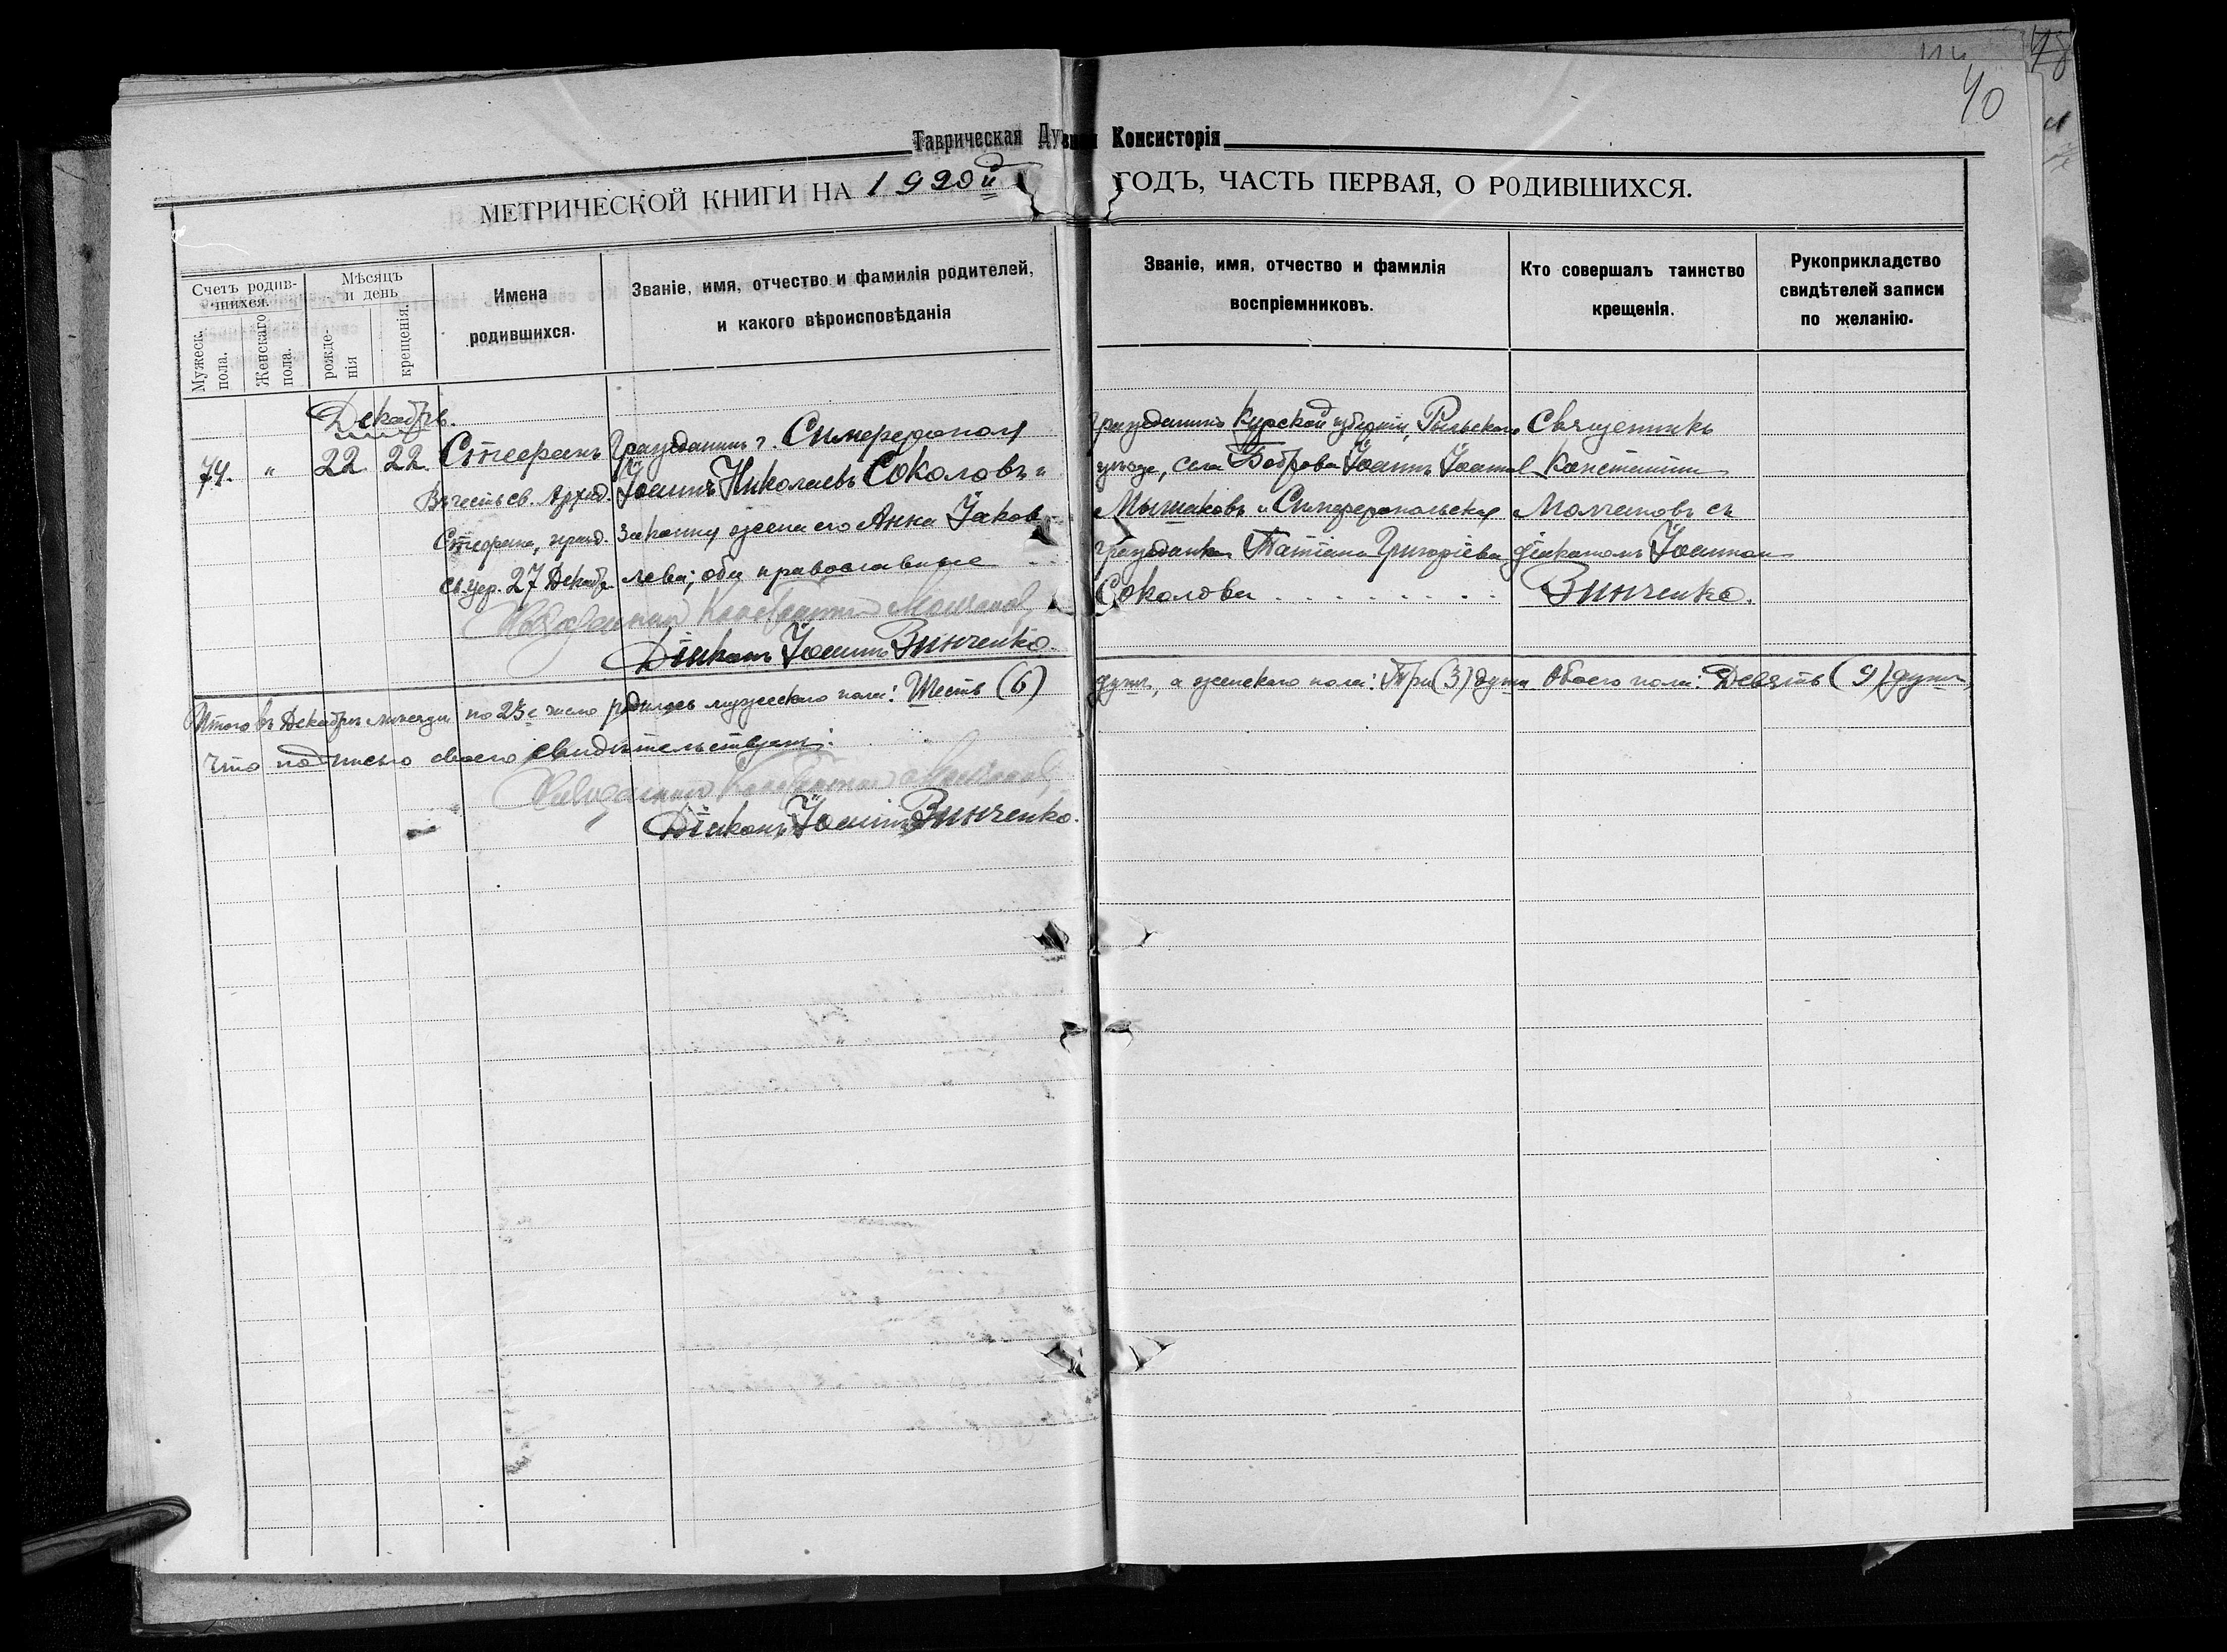 40
Таврическая Духовная Консисторія
МЕТРИЧЕСКОЙ КНИГИ НА 1920й ГОДЪ, ЧАСТЬ ПЕРВАЯ, О РОДИВШИХСЯ.
Счетъ родив-
шихся.
Мужеск.
пола.
Женскаго
пола.
Мѣсяцъ
и день
рожде-
нія
крещенія.
Имена
родившихся.
Званіе, имя, отчество и фамилія родителей,
и какого вѣроисповѣданія
Званіе, имя, отчество и фамилія
воспріемниковъ.
Кто совершалъ таинство
крещенія.
Рукоприкладство
свидѣтелей записи
по желанію.
Декабрь.
74. " 22 22
Стефанъ
Въ честь св. Архид.
Стефана, празд.
св. цер. 27 Декабр
Гражданинъ г. Симферополя
Іоаннъ Николаевъ Соколовъ и
законная жена его Анна Іаков
лева; оба православные
Гражданинъ Курской губерніи, Рыльскаго
уѣзда, села Боброва Іоаннъ Іоаннов
Мышаковъ и Симферопольская
гражданка Татіана Григоріева
Соколова
Священникъ
Константинъ
Молчановъ съ
діакономъ Іоанном
Зинченко.
Священникъ Константинъ Молчановъ
Діаконъ Іоаннъ Зинченко.
Итого въ Декабрѣ мѣсяцѣ по 23е число родилось мужескаго пола: Шесть (6) душъ, а женскаго пола: Три (3) души Обоего пола: Девять (9) душъ,
что подписью своею свидѣтельствуемъ:
Священникъ Константинъ Молчановъ
Діаконъ Іоаннъ Зинченко.